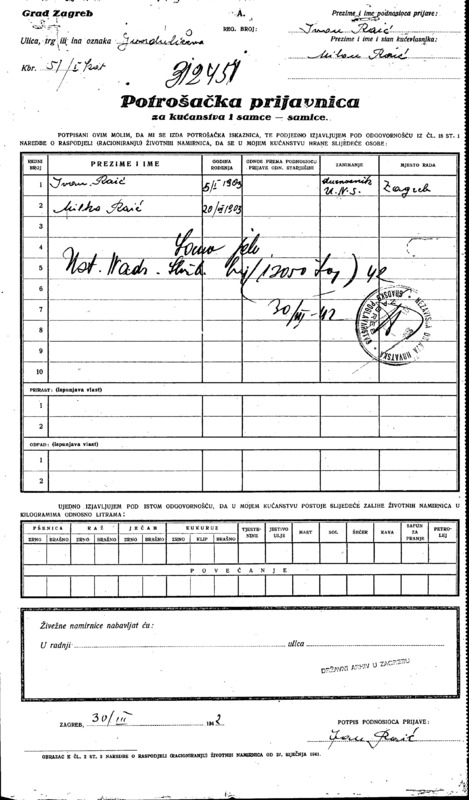 Grad Zagreb
A.
Prezime i ime podnosioca prijave:
REG. BROJ:
Ivan Raić
Ulica, trg ili ina oznaka Gundulićeva
Prezime i ime i stan kućevlasnika:
Milan Raić
Kbr. 51/I kat
312451
Potrošačka prijavnica
za kućanstva i samce — samice.
POTPISANI OVIM MOLIM, DA MI SE IZDA POTROŠAČKA ISKAZNICA, TE PODJEDNO IZJAVLJUJEM POD ODGOVORNOŠĆU IZ ČL. 18 ST. 1
NAREDBE O RASPODJELI (RACIONIRANJU) ŽIVOTNIH NAMIRNICA, DA SE U MOJEM KUĆANSTVU HRANE SLIJEDEĆE OSOBE:
REDNI BROJ PREZIME I IME GODINA ROĐENJA ODNOS PREMA PODNOSIOCU PRIJAVE ODN. STARJEŠINI ZANIMANJE MJESTO RADA
1 Ivan Raić 5/I 1903 U.N.S. Zagreb
2 Milka Raić 20/ 1903
3
4
5 Ust. Nadz. 42
6
7 30/III-42
NEZAVISNA DRŽAVA HRVATSKA
GRADSKO POGLAVARSTVO
ZAGREB
8
9
10
PRIRAST: (ispunjava vlast)
1
2
OTPAD: (ispunjava vlast)
1
2
UJEDNO IZJAVLJUJEM POD ISTOM ODGOVORNOŠĆU, DA U MOJEM KUĆANSTVU POSTOJE SLIJEDEĆE ZALIHE ŽIVOTNIH NAMIRNICA U
KILOGRAMIMA ODNOSNO LITRAMA:
PŠENICA RAŽ JEČAM KUKURUZ TJESTENINE JESTIVO ULJE MAST SOL ŠEĆER KAVA SAPUN ZA PRANJE PETROLEJ
ZRNO BRAŠNO ZRNO BRAŠNO ZRNO BRAŠNO ZRNO KLIP BRAŠNO
POVEĆANJE
Živežne namirnice nabavljat ću:
U radnji ulica
DRŽAVNI ARHIV U ZAGREBU
ZAGREB, 30/III 1942
POTPIS PODNOSIOCA PRIJAVE:
Ivan Raić
OBRAZAC K ČL. 2 ST. 2 NAREDBE O RASPODJELI (RACIONIRANJU) ŽIVOTNIH NAMIRNICA OD 27. SIJEČNJA 1941.